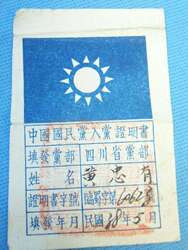 中國國民黨入黨證明書
填發黨部 四川省黨部
姓名 黃忠有
證明書字號 臨蜀字第 號
填發年月 民國 年5月